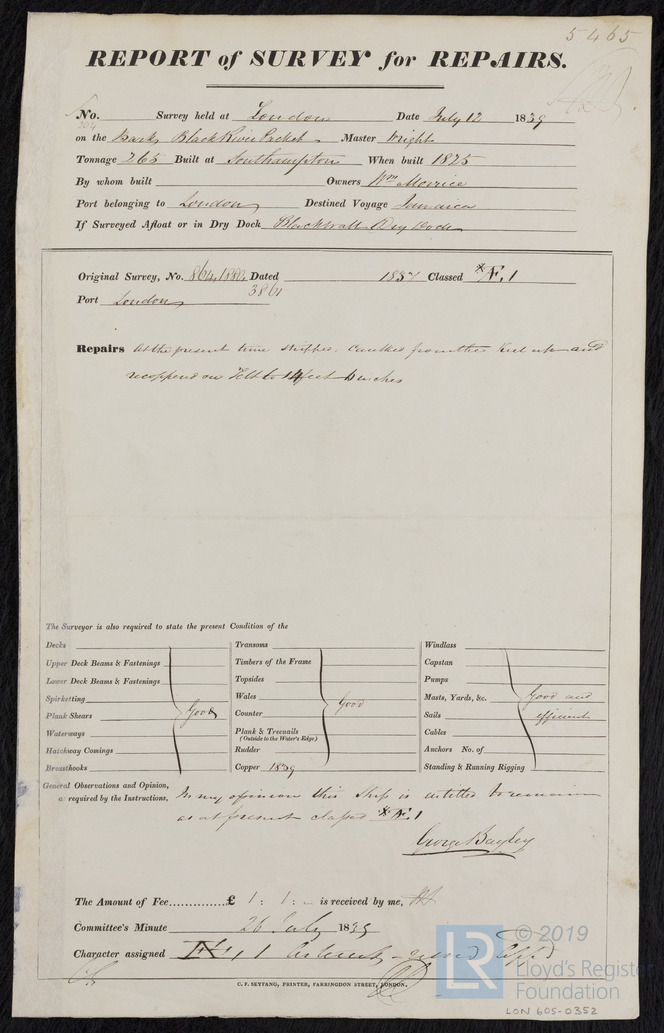 5465
REPORT of SURVEY for REPAIRS.
No. Survey held at London Date July 12 1839
on the Bark Black River Packet Master Wright
Tonnage 265 Built at Southampton When built 1825
By whom built Owners Wm Morrice
Port belonging to London Destined Voyage Jamaica
If Surveyed Afloat or in Dry Dock Blackwall Dry Dock
Original Survey, No. Dated 1837 Classed *Æ 1
3861
Port London
Repairs At the present time stripped, caulked from the Keel up and
recoppered on Felt to 14 feet 6 inches
The Surveyor is also required to state the present Condition of the
Decks
Upper Deck Beams & Fastenings
Lower Deck Beams & Fastenings
Spirketting
Plank Shears
Waterways
Hatchway Comings
Breasthooks
Good
Transoms
Timbers of the Frame
Topsides
Wales
Counter
Plank & Treenails
(Outside to the Water's Edge)
Rudder
Copper 1839
Good
Windlass
Capstan
Pumps
Masts, Yards, &c.
Sails
Cables
Anchors No. of
Standing & Running Rigging
Good and
efficient
General Observations and Opinion, In my opinion this Ship is entitled to remain
as required by the Instructions, as at present classed *Æ 1
George Bayley
The Amount of Fee............... £ 1 : 1 : - is received by me,
Committee's Minute 26 July 1839
Character assigned
C. F. SEYFANG, PRINTER, FARRINGDON STREET, LONDON.
LR
© 2019
Lloyd's Register
Foundation
LON 605-0352